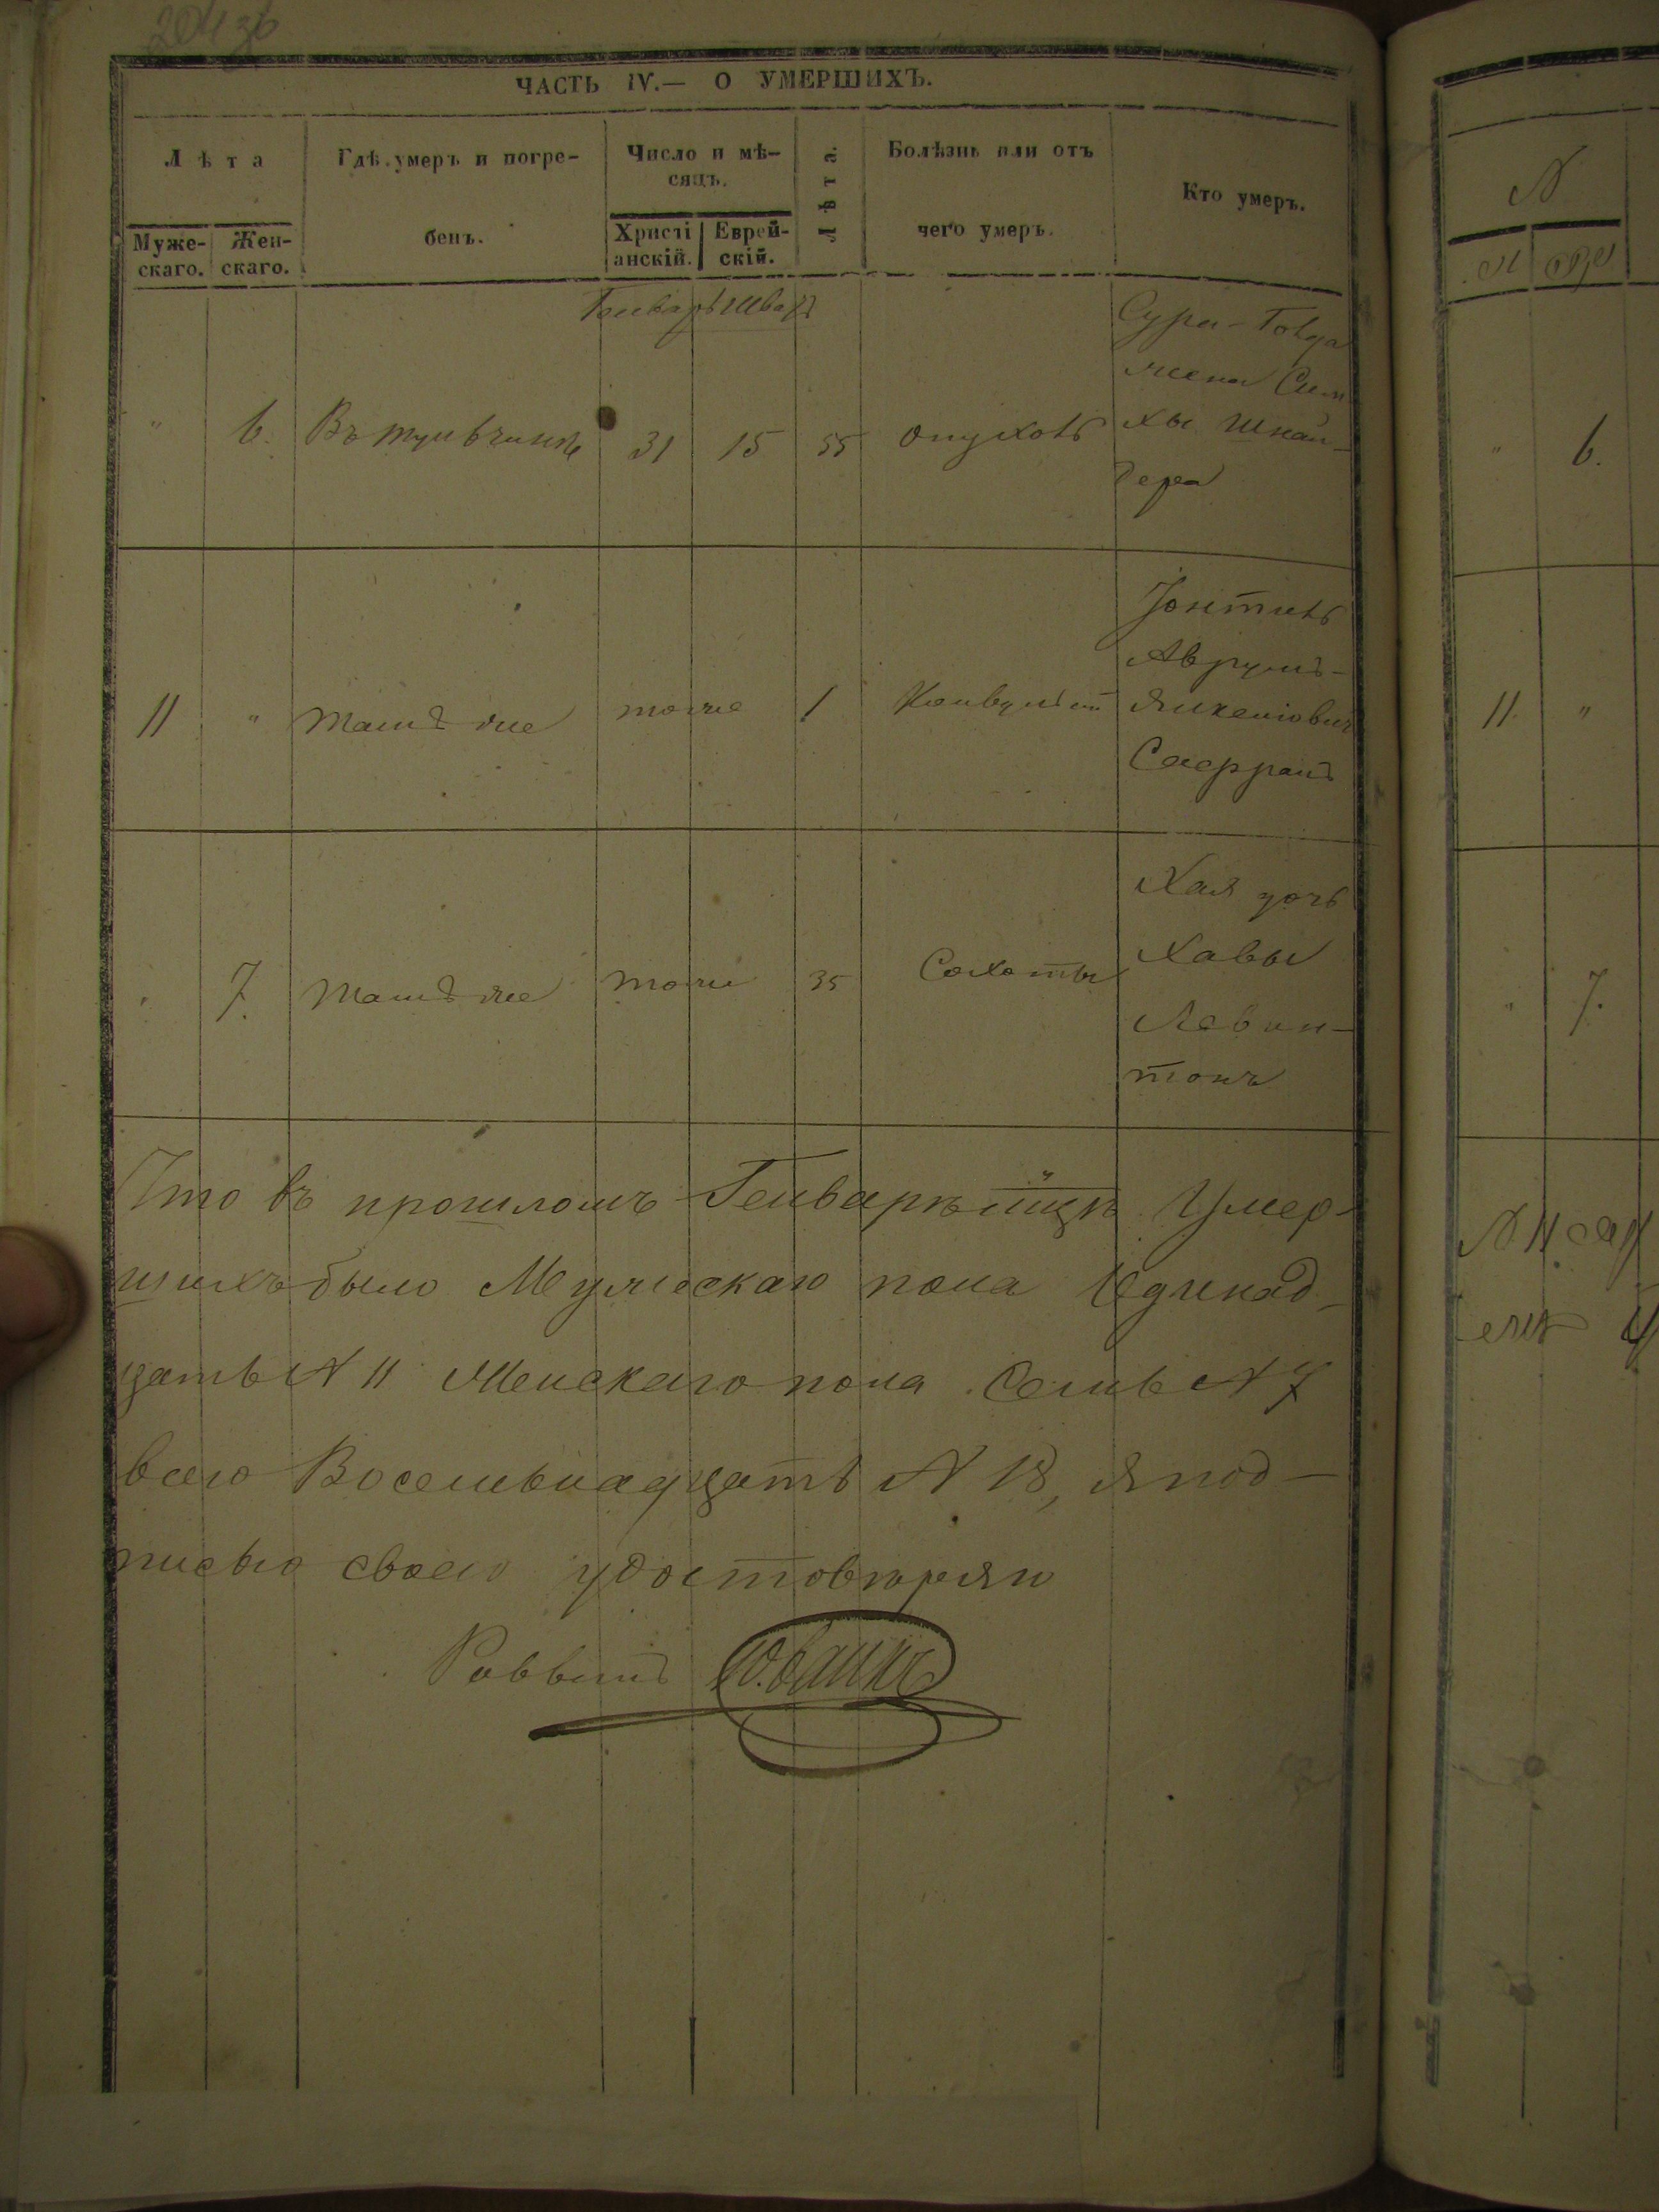 204 зв
ЧАСТЬ IV.— О УМЕРШИХЪ.
Лѣта
Муже-
скаго.
Жен-
скаго.
Гдѣ умеръ и погре-
бенъ.
Число и мѣ-
сяцъ.
Христі
анскій.
Еврей-
скій.
Лѣта.
Болѣзнь или отъ
чего умеръ.
Кто умеръ.
Генварь Шватъ
" 6. Въ тульчинѣ 31 15 55 опухоль
Сура-Голда
жена Сим
хы Шнай-
дера
11 " тамъ же тоже 1 Конвульсіи
Іонтиль
Аврумъ-
Янкеліовичъ
7. тамъ же тоже 35 Сохоты
Хая дочь
Хавы
Левин-
тонъ
Что въ прошломъ Генварѣ м-цѣ Умер-
шихъ было Мужескаго пола Одинад-
цать N 11 Женскаго пола Семь N 7
всего Восемьнадцать N 18, я под-
писью своею удостовѣряю
Раввинъ
N
М
" 6.
11. "
" 7.
N 11